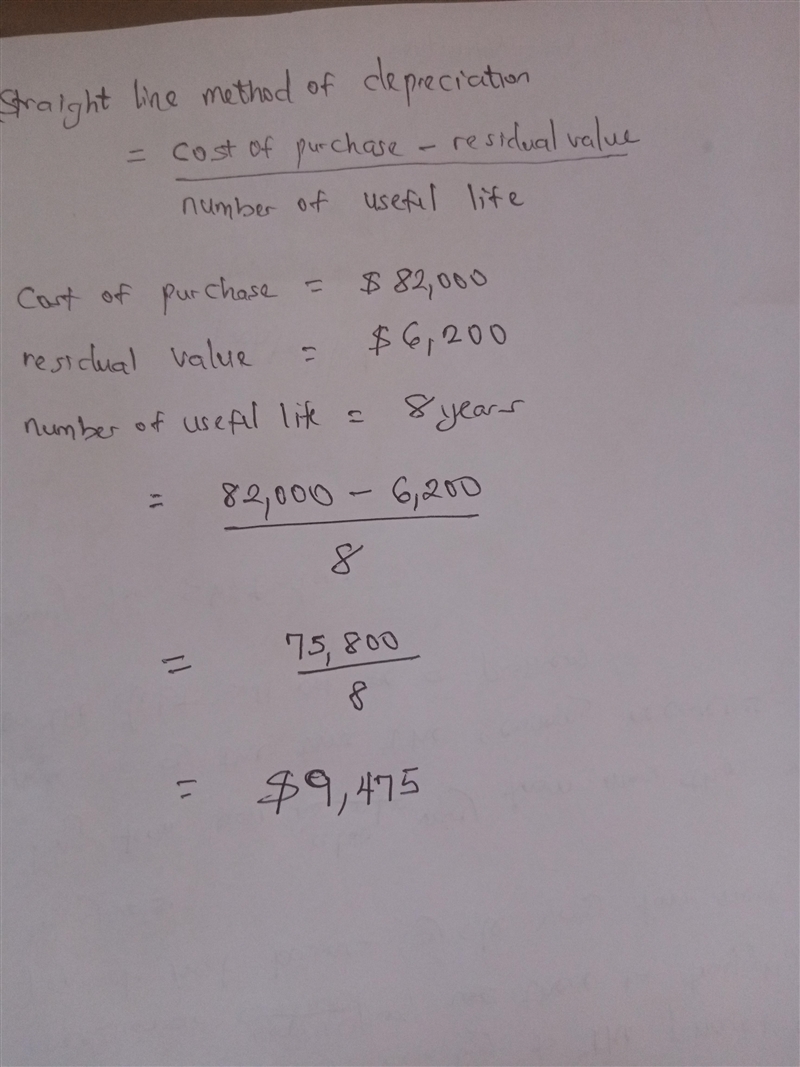 Straight line method of depreciation
= cost of purchase - residual value
number of useful life
Cost of purchase = $ 82,000
residual value = $6,200
number of useful life = 8 years
= 82,000 - 6,200
8
= 75,800
8
= $9,475